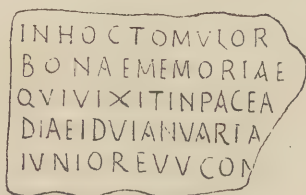 INHOCTOMVLOR
BONAEMEMORIAE
QVIVIXITINPACEA
DIAEIDVIANVARIA
IVNIOREVVCON